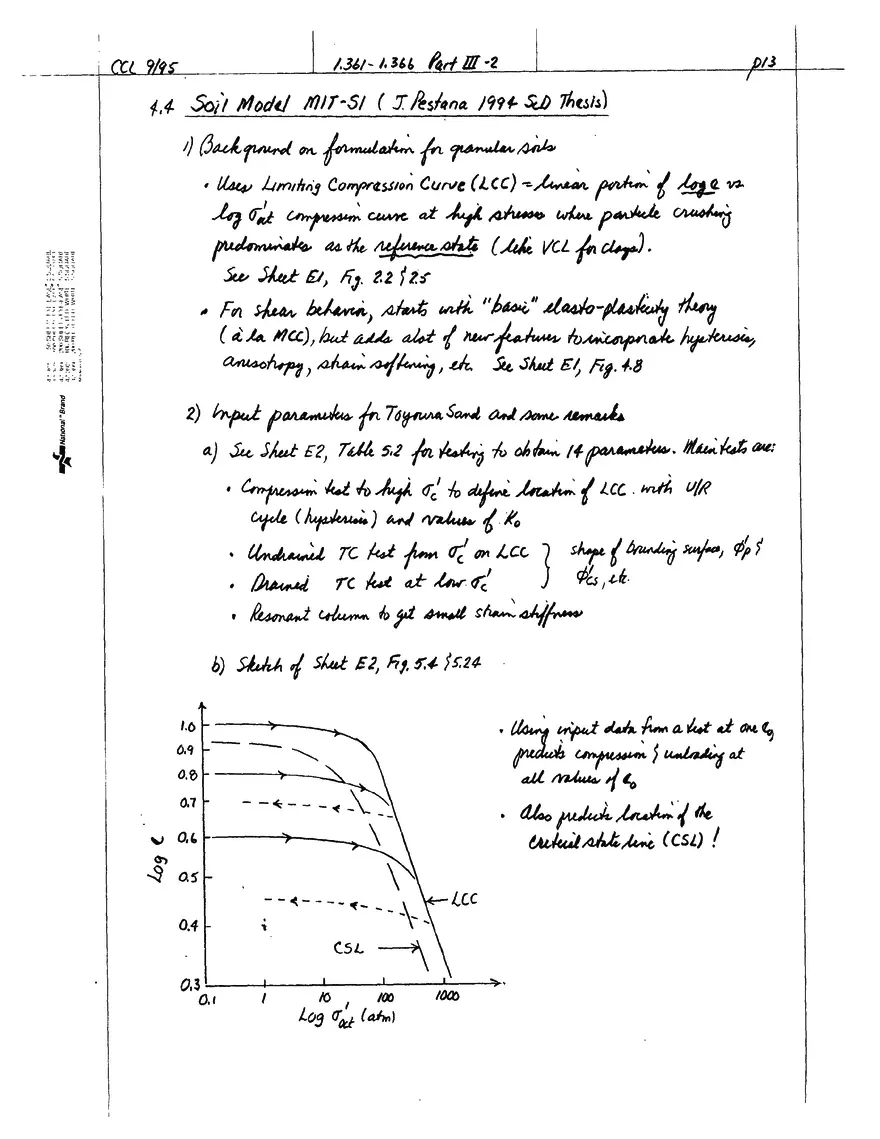 CCL 9/95
1.361-1.366 Part III-2
p13
4.4 Soil Model MIT-S1 ( J. Pestana 1994 ScD Thesis)
1) Background on formulation for granular soils
• Uses Limiting Compression Curve (LCC) = linear portion of log e vs.
log σ'oct compression curve at high stresses where particle crushing
predominates as the reference state (like VCL for clays).
See Sheet E1, Fig. 2.2 & 2.5
• For shear behavior, starts with "basic" elasto-plasticity theory
(à la MCC), but adds alot of new features to incorporate hysteresis,
anisotropy, strain softening, etc. See Sheet E1, Fig. 4.8
2) Input parameters for Toyoura Sand and some remarks
a) See Sheet E2, Table 5.2 for testing to obtain 14 parameters. Main tests are:
• Compression test to high σ'c to define location of LCC. with U/R
cycle (hysteresis) and values of K0
• Undrained TC test from σ'c on LCC } shape of bounding surface, φ'p &
• Drained TC test at low σ'c } φ'cs, etc.
• Resonant column to get small strain stiffness
b) Sketch of Sheet E2, Fig. 5.4 & 5.24
• Using input data from a test at one e0,
predicts compression & unloading at
all values of e0
• Also predicts location of the
critical state line (CSL) !
Log e
1.0
0.9
0.8
0.7
0.6
0.5
0.4
0.3
LCC
CSL
0.1 1 10 100 1000
Log σ'oct (atm)
National® Brand